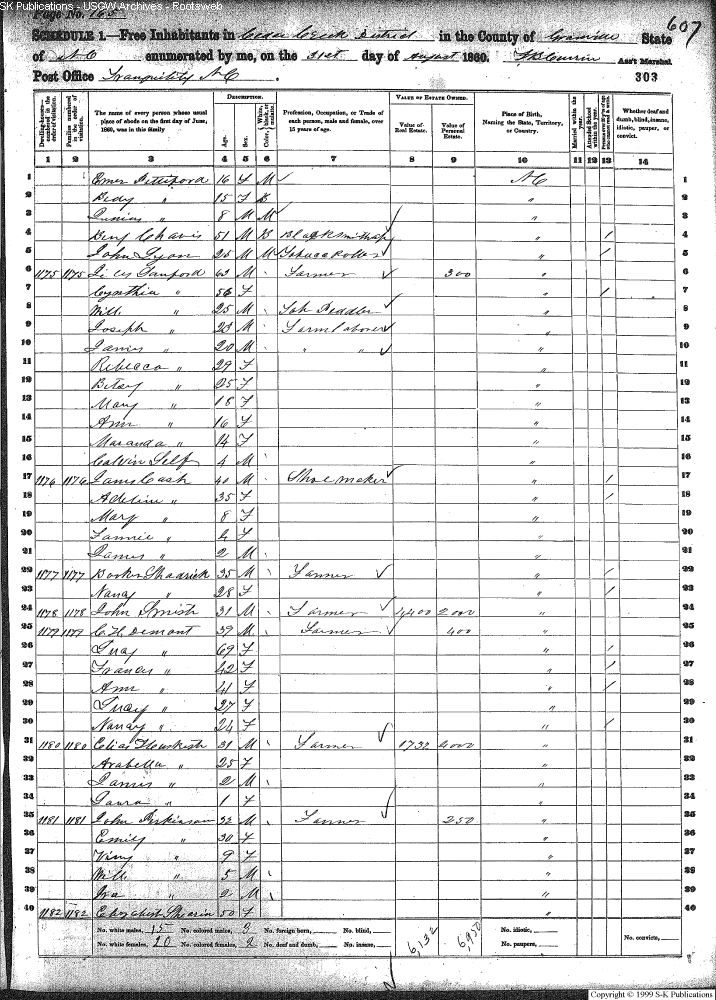 SK Publications - USGW Archives - Rootsweb
Page No. 165
607
SCHEDULE 1.—Free Inhabitants in Cedar Creek District in the County of Granville State
of N C enumerated by me, on the 31st day of August 1860. Ass't Marshal
Post Office Tranquility N C
303
DESCRIPTION. VALUE OF ESTATE OWNED.
Dwelling-houses numbered in the order of visitation. Families numbered in the order of visitation. The name of every person whose usual place of abode on the first day of June, 1860, was in this family Age. Sex. Color, White, black, or mulatto. Profession, Occupation, or Trade of each person, male and female, over 15 years of age. Value of Real Estate. Value of Personal Estate. Place of Birth, Naming the State, Territory, or Country. Married within the year. Attended School within the year. Whether deaf and dumb, blind, insane, idiotic, pauper, or convict.
1 2 3 4 5 6 7 8 9 10 11 12 13 14
1 16 F M N C 1
2 15 F " 2
3 Junius " 8 M M " 3
4 Benj Chavis 51 M B " / 4
5 John Tyon 25 M M Tobacco Roller " / 5
6 1175 1175 63 M Farmer 300 " 6
7 Cynthia " 56 F " / 7
8 Will " 25 M Peddler " 8
9 Joseph " 23 M Farm laborer " 9
10 James " 20 M " " " 10
11 Rebecca " 29 F " 11
12 Betsy " 25 F " 12
13 Mary " 18 F " 13
14 Ann " 16 F " 14
15 Maranda " 14 F " 15
16 Calvin Self 4 M " 16
17 1176 1176 James Cash 40 M Shoe maker " / 17
18 Adeline " 35 F " / 18
19 Mary " 8 F " 19
20 Fannie " 4 F " 20
21 James " 2 M " 21
22 1177 1177 Booker Shadrick 35 M Farmer " / 22
23 Nancy " 28 F " / 23
24 1178 1178 John 31 M Farmer 4,400 2000 " 24
25 1179 1179 C H Demont 39 M Farmer 400 " 25
26 " 69 F " / 26
27 Frances " 42 F " / 27
28 Ann " 41 F " / 28
29 " 27 F " 29
30 Nancy " 24 F " / 30
31 1180 1180 Elias 31 M Farmer 1732 4000 " 31
32 Arabella " 25 F " 32
33 James " 2 M " 33
34 Laura " 1 F " 34
35 1181 1181 John Perkinson 32 M Farmer 250 " 35
36 Emily " 30 F " 36
37 " 9 F " 37
38 Will " 5 M " 38
39 Ira " 2 M " 39
40 1182 1182 Elizabeth 50 F " 40
No. white males, 15 No. colored males, 3 No. foreign born, No. blind, 6,132 6,950 No. idiotic, No. convicts,
No. white females, 20 No. colored females, 2 No. deaf and dumb, No. insane, No. paupers,
Copyright © 1999 S-K Publications